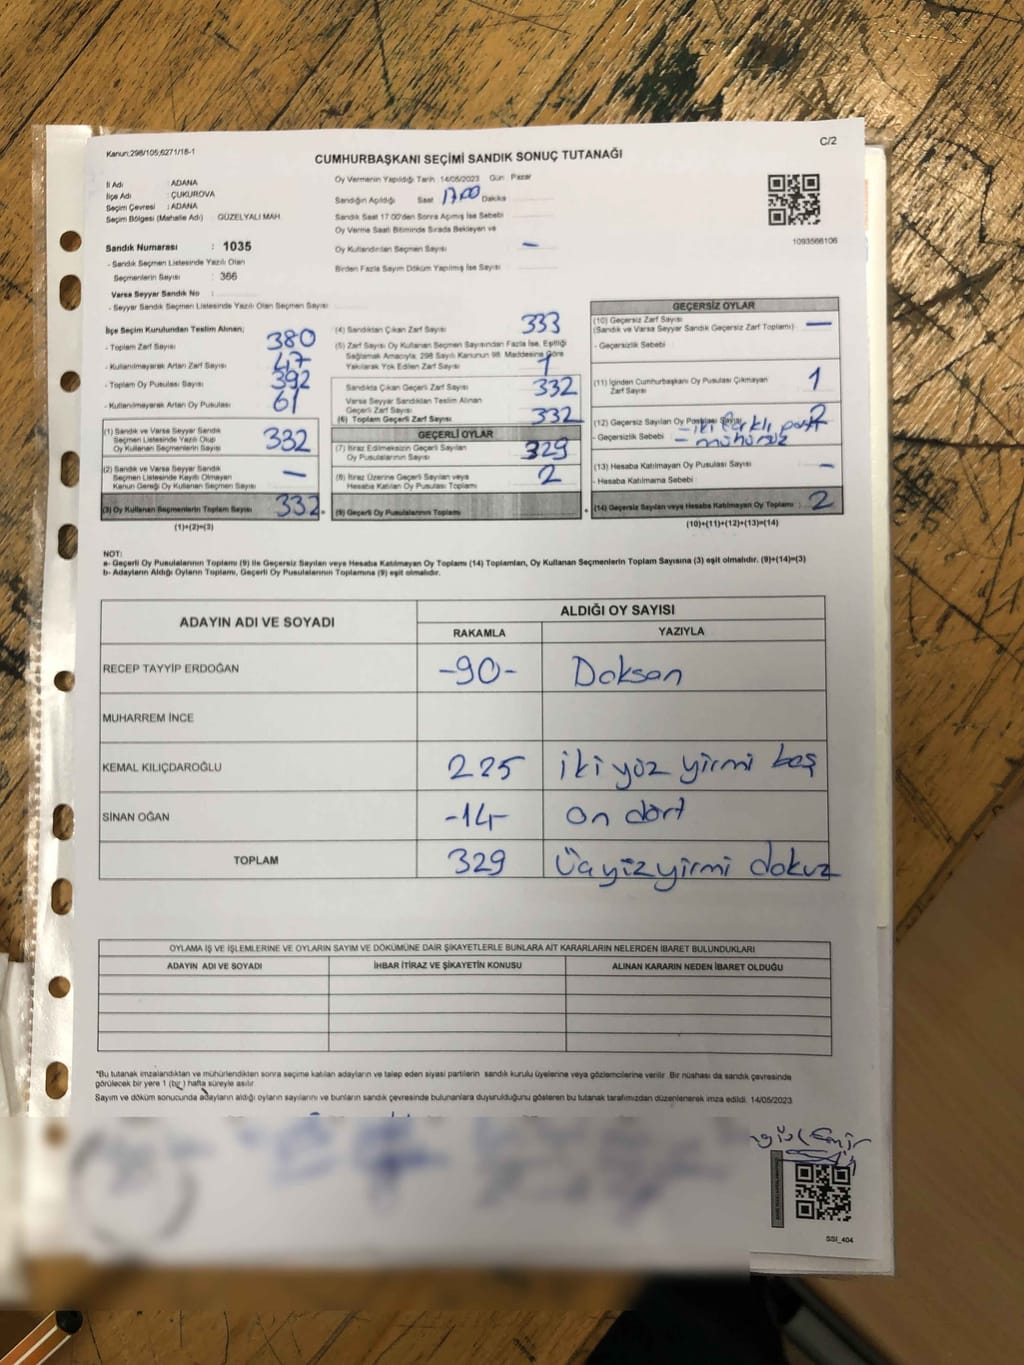 Kanun;298/105;6271/18-1
C/2
CUMHURBAŞKANI SEÇİMİ SANDIK SONUÇ TUTANAĞI
İl Adı : ADANA
İlçe Adı : ÇUKUROVA
Seçim Çevresi : ADANA
Seçim Bölgesi (Mahalle Adı) GÜZELYALI MAH.
Sandık Numarası : 1035
- Sandık Seçmen Listesinde Yazılı Olan
Seçmenlerin Sayısı : 366
Varsa Seyyar Sandık No :
- Seyyar Sandık Seçmen Listesinde Yazılı Olan Seçmen Sayısı :
Oy Vermenin Yapıldığı Tarih :14/05/2023 Gün: Pazar
Sandığın Açıldığı Saat 17.00 Dakika
Sandık Saat 17:00'den Sonra Açımış İse Sebebi
Oy Verme Saati Bitiminde Sırada Bekleyen ve
Oy Kullandırılan Seçmen Sayısı -
Birden Fazla Sayım Döküm Yapılmış İse Sayısı
1093566106
İlçe Seçim Kurulundan Teslim Alınan;
- Toplam Zarf Sayısı 380
- Kullanılmayarak Artan Zarf Sayısı 47
- Toplam Oy Pusulası Sayısı 392
- Kullanılmayarak Artan Oy Pusulası 61
(1) Sandık ve Varsa Seyyar Sandık
Seçmen Listesinde Yazılı Olup
Oy Kullanan Seçmenlerin Sayısı 332
(2) Sandık ve Varsa Seyyar Sandık
Seçmen Listesinde Kayıtlı Olmayan
Kanun Gereği Oy Kullanan Seçmen Sayısı -
(3) Oy Kullanan Seçmenlerin Toplam Sayısı 332
(1)+(2)=(3)
(4) Sandıktan Çıkan Zarf Sayısı 333
(5) Zarf Sayısı Oy Kullanan Seçmen Sayısından Fazla İse, Eşitliği
Sağlamak Amacıyla; 298 Sayılı Kanunun 98. Maddesine Göre
Yakılarak Yok Edilen Zarf Sayısı 1
Sandıkta Çıkan Geçerli Zarf Sayısı 332
Varsa Seyyar Sandıktan Teslim Alınan
Geçerli Zarf Sayısı
(6) Toplam Geçerli Zarf Sayısı 332
GEÇERLİ OYLAR
(7) İtiraz Edilmeksizin Geçerli Sayılan
Oy Pusulalarının Sayısı 329
(8) İtiraz Üzerine Geçerli Sayılan veya
Hesaba Katılan Oy Pusulası Toplamı 2
(9) Geçerli Oy Pusulalarının Toplamı
GEÇERSİZ OYLAR
(10) Geçersiz Zarf Sayısı
(Sandık ve Varsa Seyyar Sandık Geçersiz Zarf Toplamı) -
- Geçersizlik Sebebi
(11) İçinden Cumhurbaşkanı Oy Pusulası Çıkmayan
Zarf Sayısı 1
(12) Geçersiz Sayılan Oy Pusulası Sayısı 2
- Geçersizlik Sebebi - iki farklı parti
- mühürsüz
(13) Hesaba Katılmayan Oy Pusulası Sayısı -
- Hesaba Katılmama Sebebi
(14) Geçersiz Sayılan veya Hesaba Katılmayan Oy Toplamı 2
(10)+(11)+(12)+(13)=(14)
NOT:
a- Geçerli Oy Pusulalarının Toplamı (9) ile Geçersiz Sayılan veya Hesaba Katılmayan Oy Toplamı (14) Toplamları, Oy Kullanan Seçmenlerin Toplam Sayısına (3) eşit olmalıdır. (9)+(14)=(3)
b- Adayların Aldığı Oyların Toplamı, Geçerli Oy Pusulalarının Toplamına (9) eşit olmalıdır.
ADAYIN ADI VE SOYADI
ALDIĞI OY SAYISI
RAKAMLA YAZIYLA
RECEP TAYYİP ERDOĞAN -90- Doksan
MUHARREM İNCE
KEMAL KILIÇDAROĞLU 225 iki yüz yirmi beş
SİNAN OĞAN -14- on dört
TOPLAM 329 Üçyüzyirmi dokuz
OYLAMA İŞ VE İŞLEMLERİNE VE OYLARIN SAYIM VE DÖKÜMÜNE DAİR ŞİKAYETLERLE BUNLARA AİT KARARLARIN NELERDEN İBARET BULUNDUKLARI
ADAYIN ADI VE SOYADI İHBAR İTİRAZ VE ŞİKAYETİN KONUSU ALINAN KARARIN NEDEN İBARET OLDUĞU
*Bu tutanak imzalandıktan ve mühürlendikten sonra seçime katılan adayların ve talep eden siyasi partilerin sandık kurulu üyelerine veya gözlemcilerine verilir. Bir nüshası da sandık çevresinde
görülecek bir yere 1 (bir) hafta süreyle asılır.
Sayım ve döküm sonucunda adayların aldığı oyların sayılarını ve bunların sandık çevresinde bulunanlara duyurulduğunu gösteren bu tutanak tarafımızdan düzenlenerek imza edildi. 14/05/2023
SSI_404